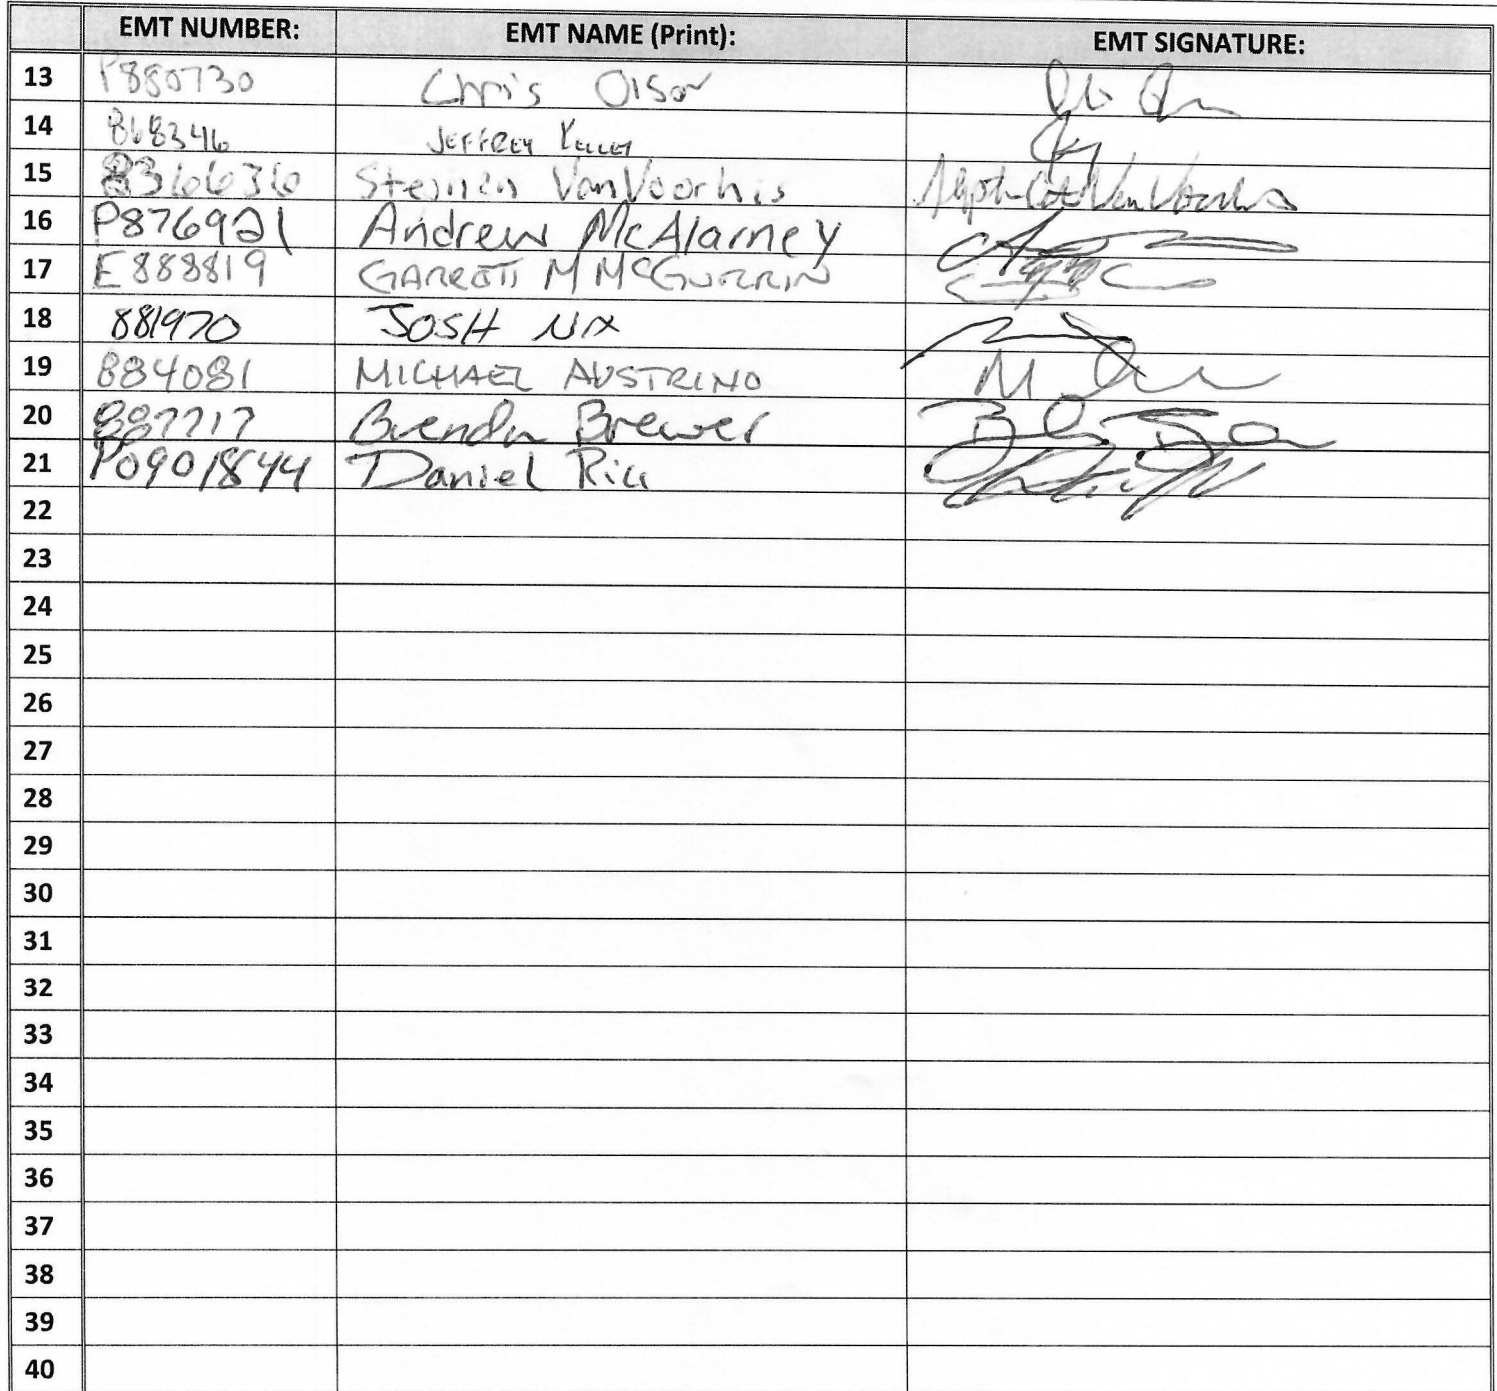 EMT NUMBER: EMT NAME (Print): EMT SIGNATURE:
13 P880730 Chris Olson
14 868346 JEFFREY KELLEY
15 8366636 Stephen VanVoorhis
16 P876921 Andrew McAlarney
17 E888819 GARRETT M MCGURRIN
18 881970 JOSH NIX
19 884081 MICHAEL AUSTRINO
20 887717 Brenda Brewer
21 P0901844 Daniel Rice
22
23
24
25
26
27
28
29
30
31
32
33
34
35
36
37
38
39
40